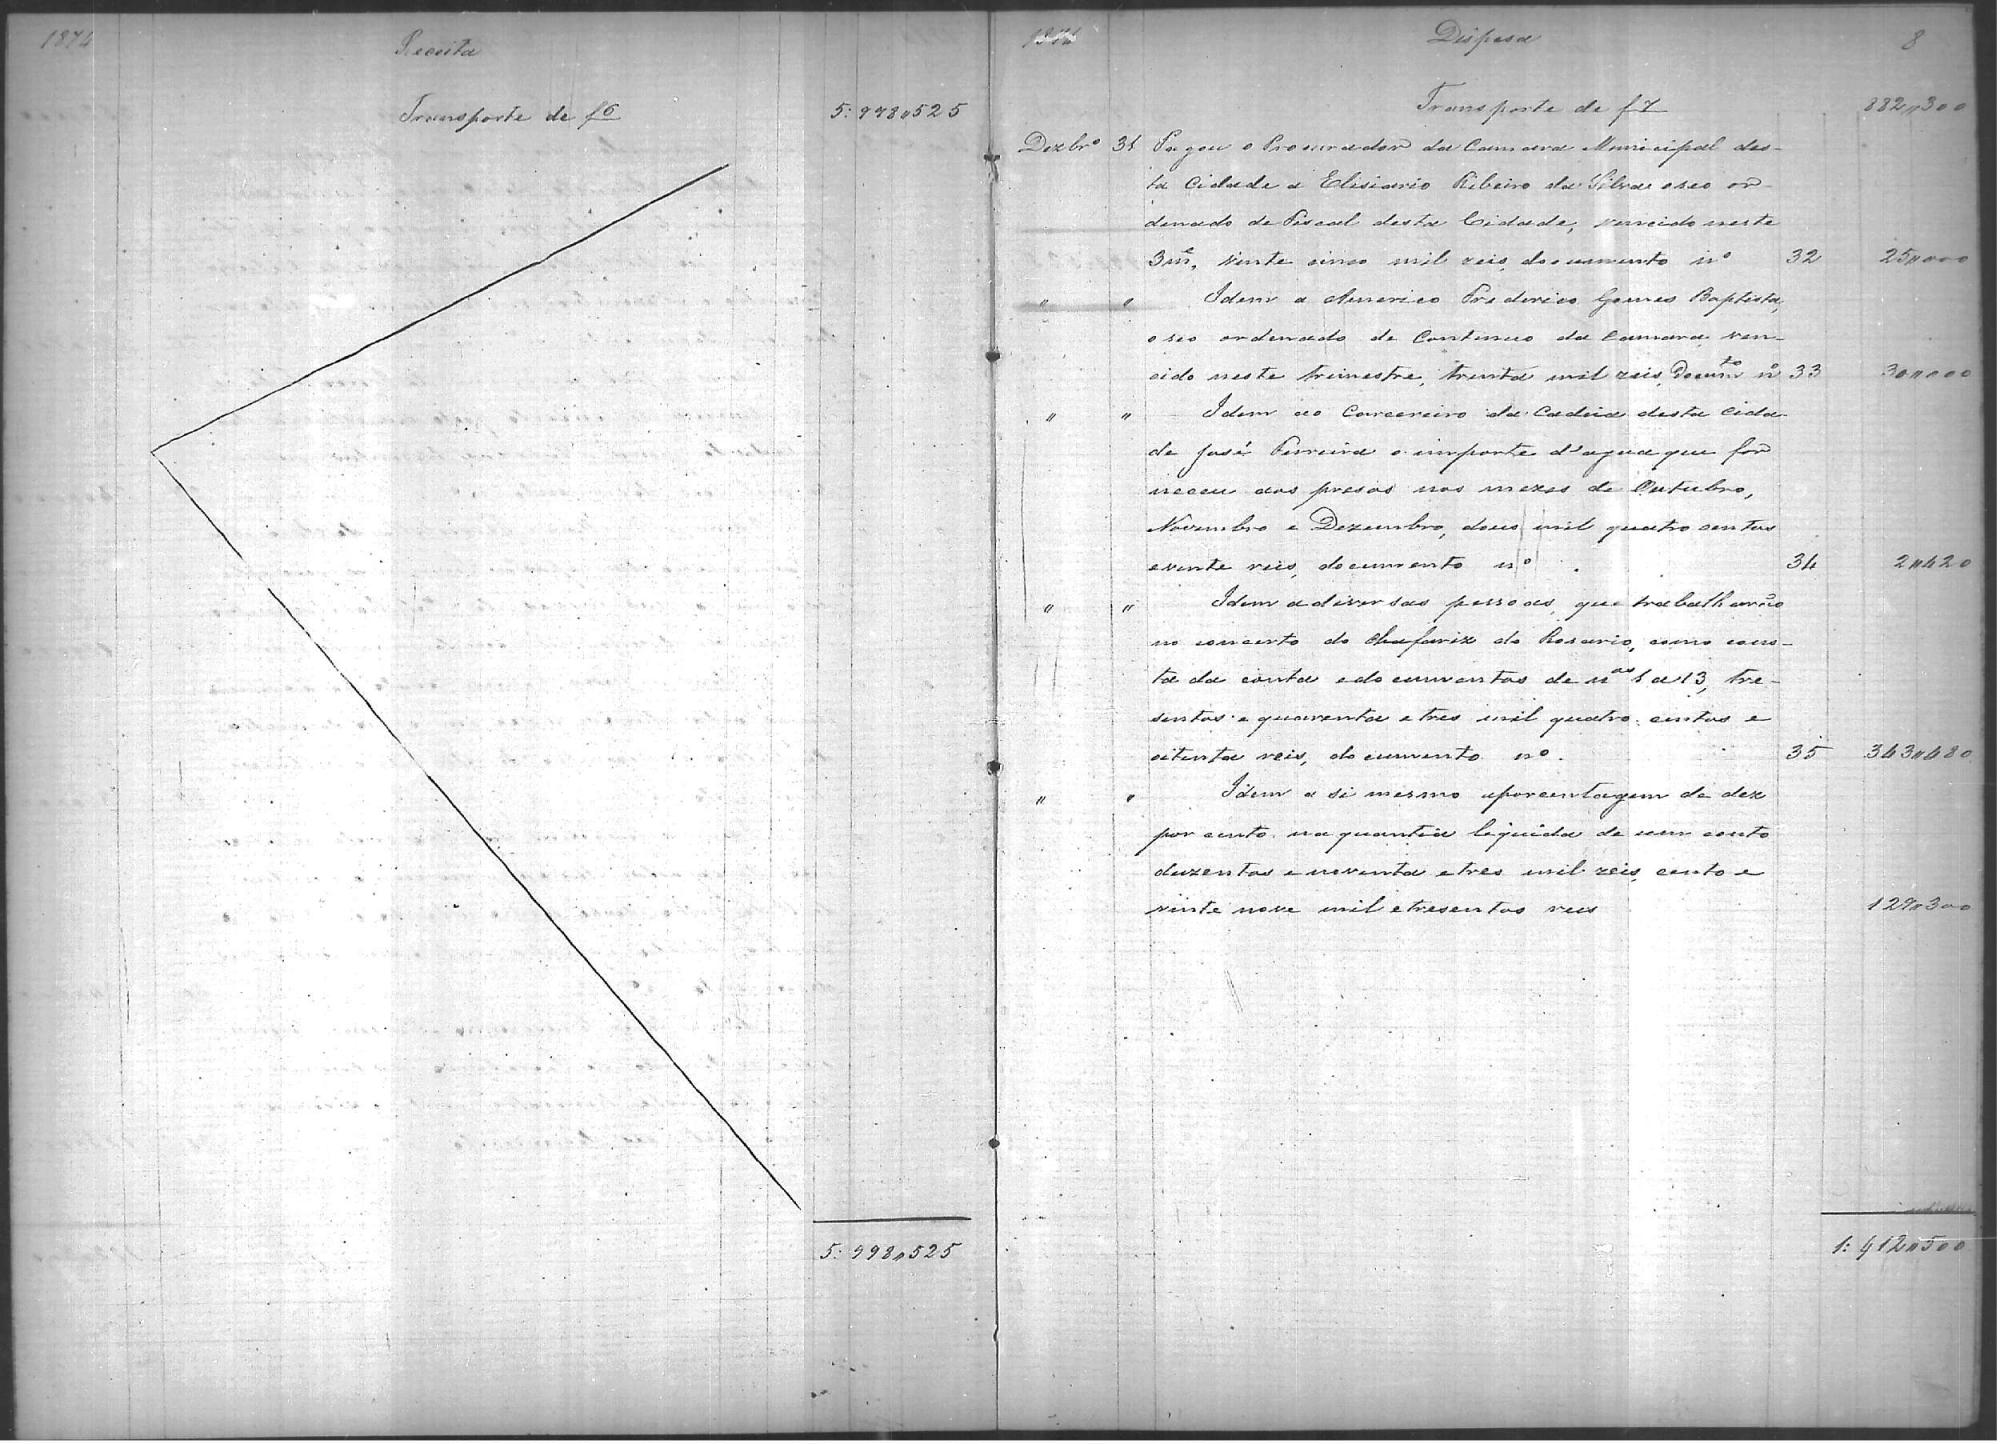 1874
Receita
Transporte de f 6
5:998"525
5:998"525
1874
Dispesa
8
Transporte de f 7
882"300
Dezbrº 31 Pagou o Procurador da Camara Municipal des-
ta Cidade a Elisiario Ribeiro da Silva o seo or-
denado de Fiscal desta Cidade, vencido neste
3mᵉ, vinte cinco mil reis, documento nº 32 25"000
" " Idem a Americo Frederico Gomes Baptista,
o seo ordenado de Continuo da Camara ven-
cido neste trimestre, trinta mil reis, Documto nº 33 30"000
" " Idem ao Carcereiro da Cadeia desta Cida-
de José Ferreira o importe d'agua que for
neceu aos presos nos mezes de Outubro,
Novembro e Dezembro, dous mil quatro centos
e vinte reis, documento nº . 34 2"420
" " Idem a diversas pessoas, que trabalharão
no concerto do Chafariz do Rosario, como cons-
ta da conta e documentos de nos 1 a 13, tre-
sentos e quarenta e tres mil quatro centos e
oitenta reis, documento nº. 35 343"480
" " Idem a si mesmo a porcentagem de dez
por cento na quantia liquida de um conto
duzentos e noventa e tres mil reis, cento e
vinte nove mil e tresentos reis 129"300
1:412"500